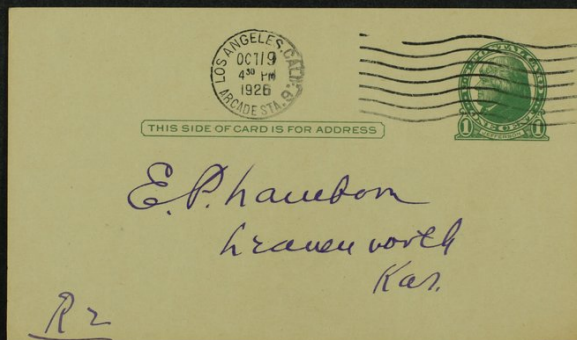 LOS ANGELES, CALIF.
OCT 19
4 30 PM
1926
ARCADE STA.
THIS SIDE OF CARD IS FOR ADDRESS
1 1
E. P. Lamborn
Leavenworth
Kas.
R 2